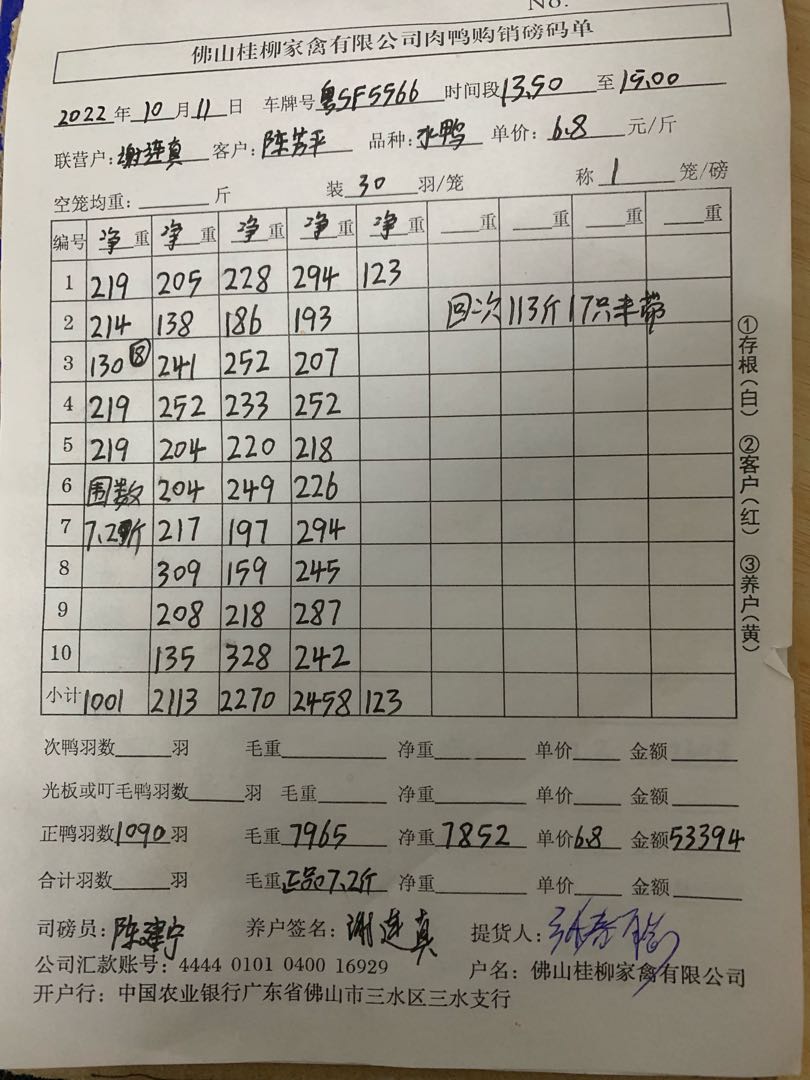 No.
佛山桂柳家禽有限公司肉鸭购销磅码单
2022年10月11日 车牌号粤SF5566 时间段13.50至15.00
联营户:谢连真 客户:陈芳平 品种:水鸭 单价:6.8元/斤
空笼均重:______斤 装30羽/笼 称1笼/磅
编号 净重 净重 净重 净重 净重 ___重 ___重 ___重 ___重
1 219 205 228 294 123
2 214 138 186 193 回二次113斤17只半带
3 130⑱ 241 252 207
4 219 252 233 252
5 219 204 220 218
6 围数 204 249 226
7 7.2斤 217 197 294
8 309 159 245
9 208 218 287
10 135 328 242
小计 1001 2113 2270 2458 123
次鸭羽数______羽 毛重______ 净重______ 单价______ 金额______
光板或叮毛鸭羽数______羽 毛重______ 净重______ 单价______ 金额______
正鸭羽数1090羽 毛重7965 净重7852 单价6.8 金额53394
合计羽数______羽 毛重正品7.2斤 净重______ 单价______ 金额______
司磅员:陈建宁 养户签名:谢连真 提货人:
公司汇款账号:4444 0101 0400 16929 户名:佛山桂柳家禽有限公司
开户行:中国农业银行广东省佛山市三水区三水支行
①存根(白) ②客户(红) ③养户(黄)